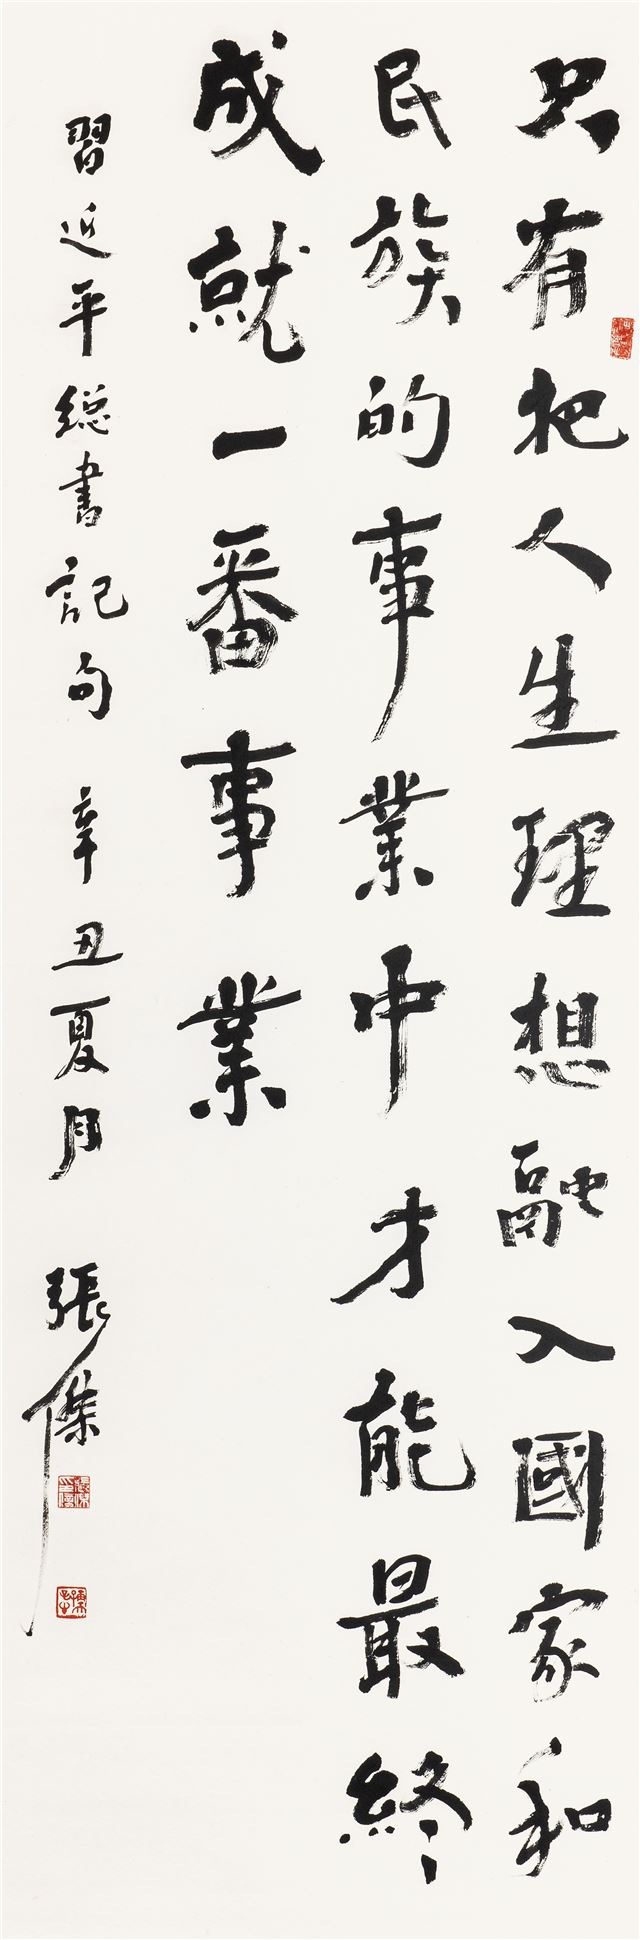 只有把人生理想融入國家和
民族的事業中才能最終
成就一番事業
習近平總書記句 辛丑夏月 張傑